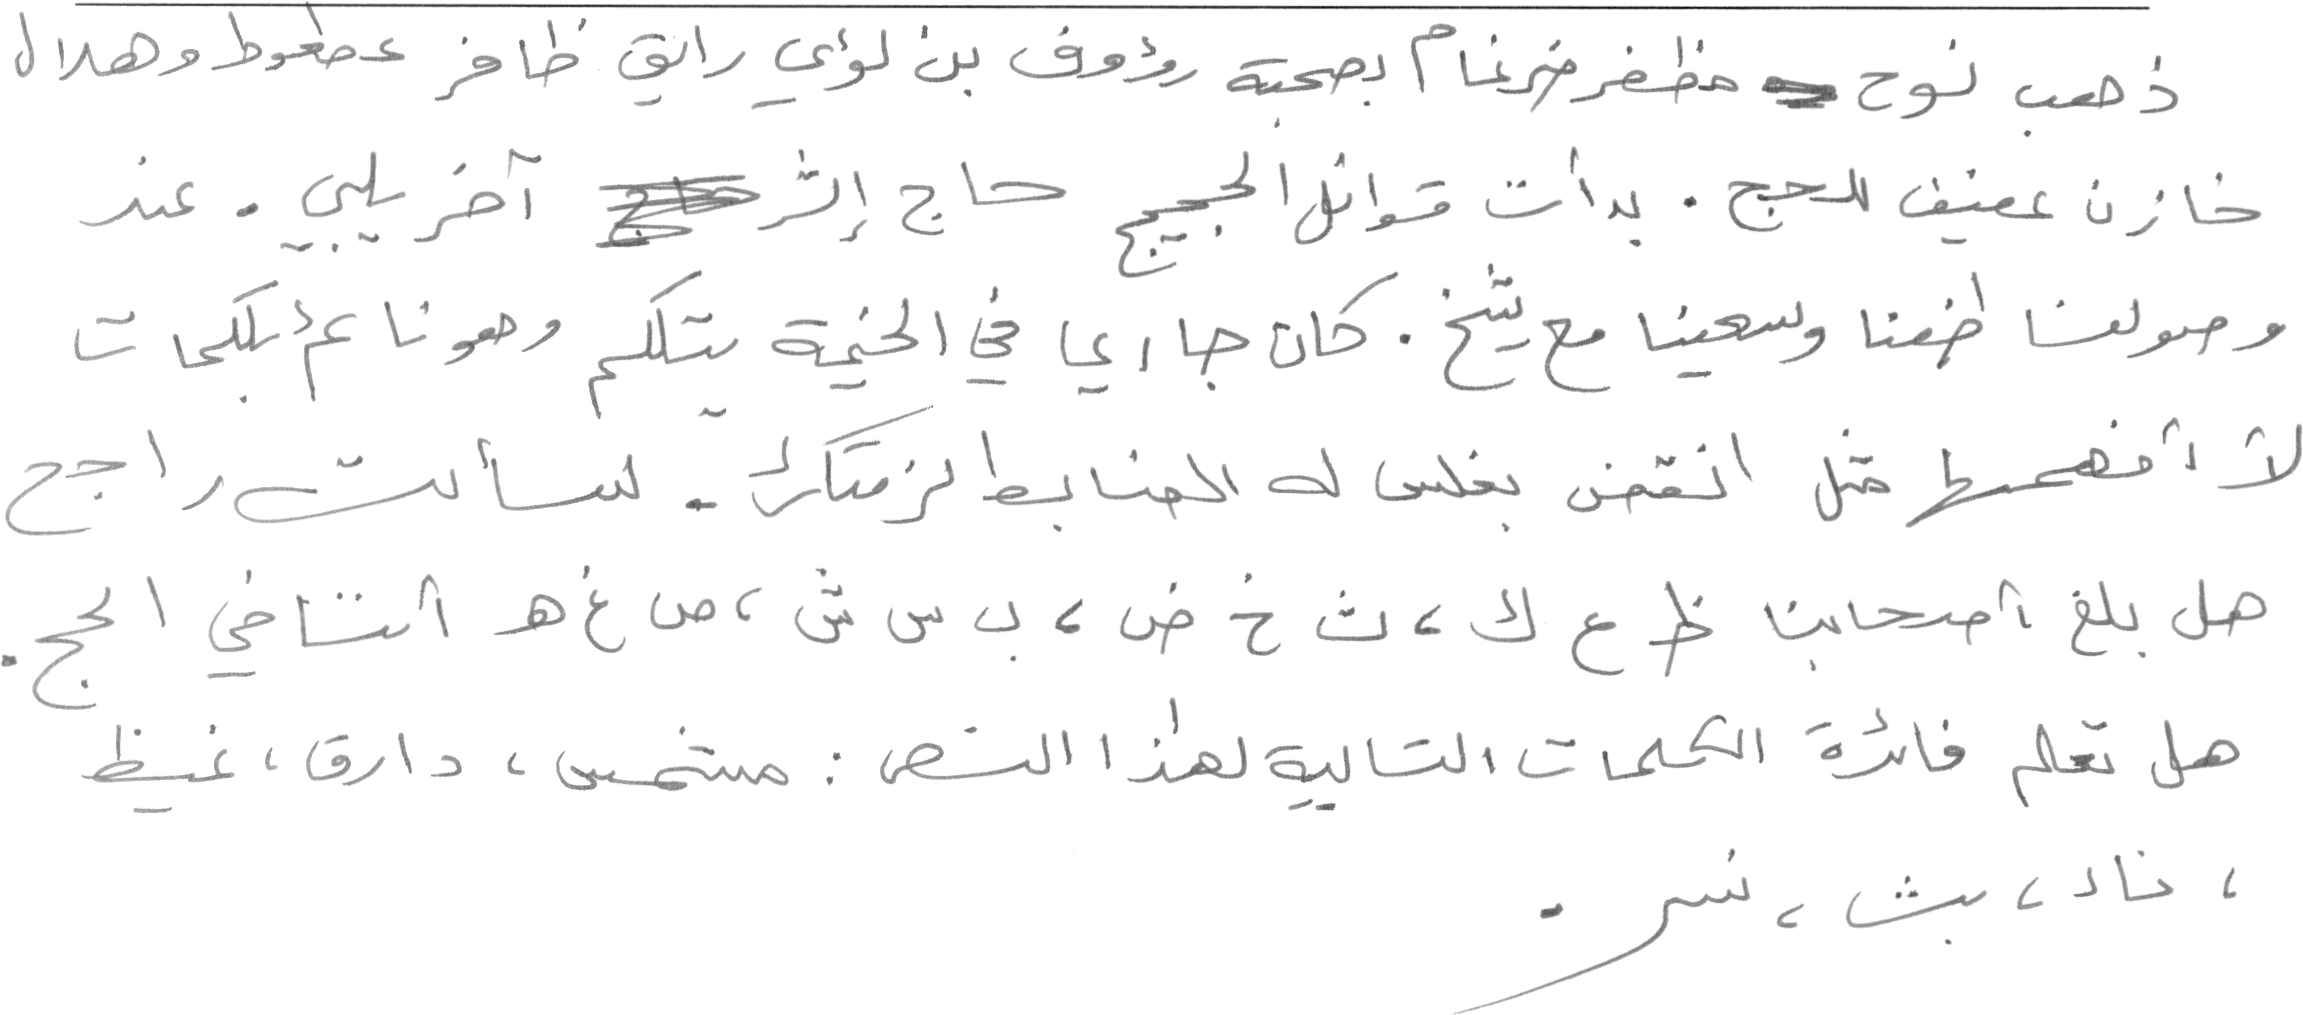 ذهب نوح مظفر ضرغام بصحبة رؤوف بن لؤي رايق ظافر عطعوط وهلال
خازن عفيف للحج . بدأت قوافل الحجيج حاج إثر آخر يلبي . عند
وصولنا طفنا وسعينا مع شيخ . كان جاري في الخيمة يتكلم وهو نائم بكلمات
لا أفهمها مثل انقض بغلس له الضابط لزمتك . لسألت راجح
هل بلغ أصحابنا ظ ع ك ، ث خ ض ، ب س ش ، ص غ هـ أنتا في الحج .
هل تعلم فائدة الكلمات التالية لهذا النص : مشمس ، دارق ، غيظ
، ناد ، بث ، نسر .